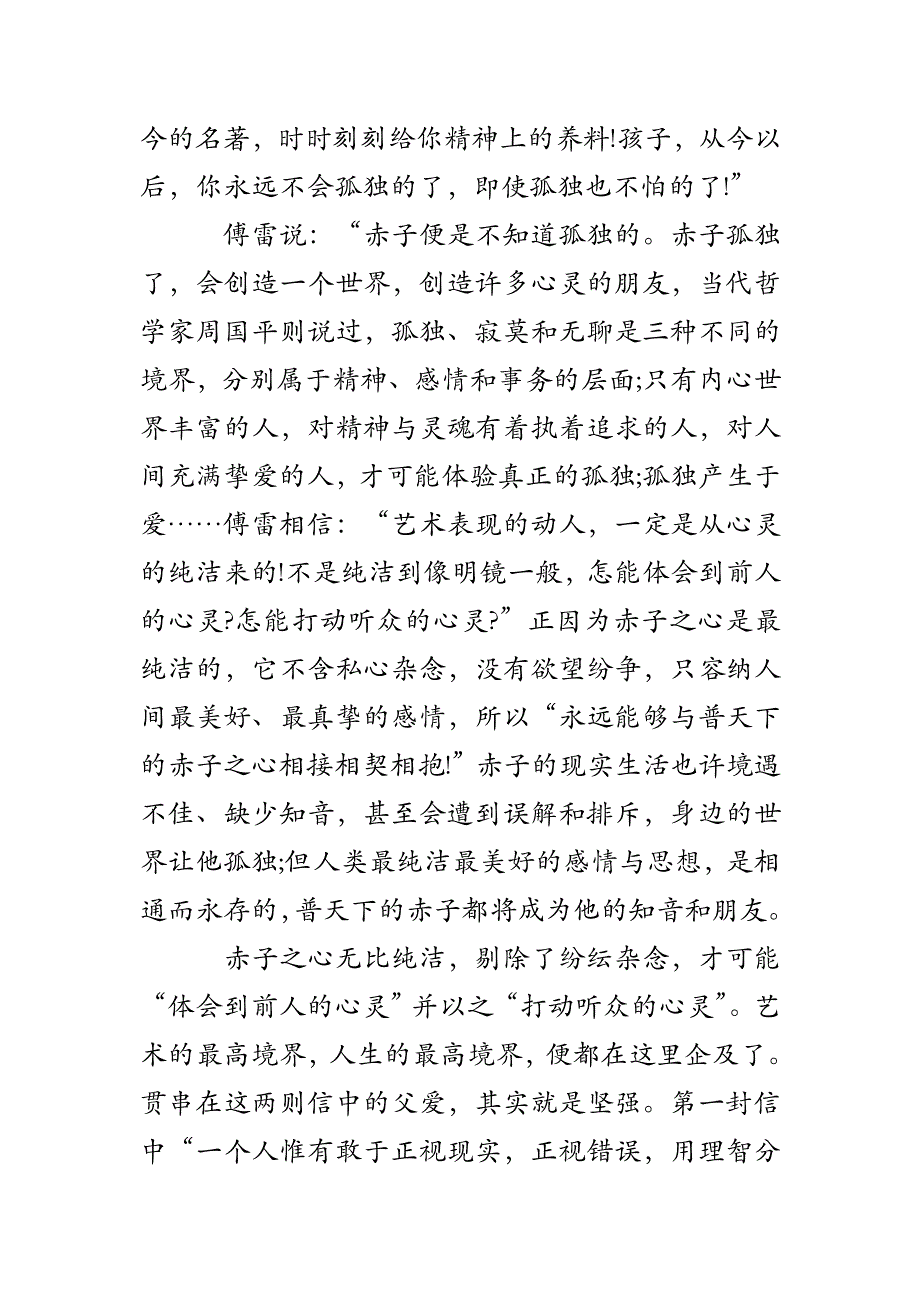 今的名著，时时刻刻给你精神上的养料!孩子，从今以
后，你永远不会孤独的了，即使孤独也不怕的了!”
傅雷说：“赤子便是不知道孤独的。赤子孤独
了，会创造一个世界，创造许多心灵的朋友，当代哲
学家周国平则说过，孤独、寂莫和无聊是三种不同的
境界，分别属于精神、感情和事务的层面;只有内心世
界丰富的人，对精神与灵魂有着执着追求的人，对人
间充满挚爱的人，才可能体验真正的孤独;孤独产生于
爱……傅雷相信：“艺术表现的动人，一定是从心灵
的纯洁来的!不是纯洁到像明镜一般，怎能体会到前人
的心灵?怎能打动听众的心灵?”正因为赤子之心是最
纯洁的，它不含私心杂念，没有欲望纷争，只容纳人
间最美好、最真挚的感情，所以“永远能够与普天下
的赤子之心相接相契相抱!”赤子的现实生活也许境遇
不佳、缺少知音，甚至会遭到误解和排斥，身边的世
界让他孤独;但人类最纯洁最美好的感情与思想，是相
通而永存的，普天下的赤子都将成为他的知音和朋友。
赤子之心无比纯洁，剔除了纷纭杂念，才可能
“体会到前人的心灵”并以之“打动听众的心灵”。艺
术的最高境界，人生的最高境界，便都在这里企及了。
贯串在这两则信中的父爱，其实就是坚强。第一封信
中“一个人惟有敢于正视现实，正视错误，用理智分